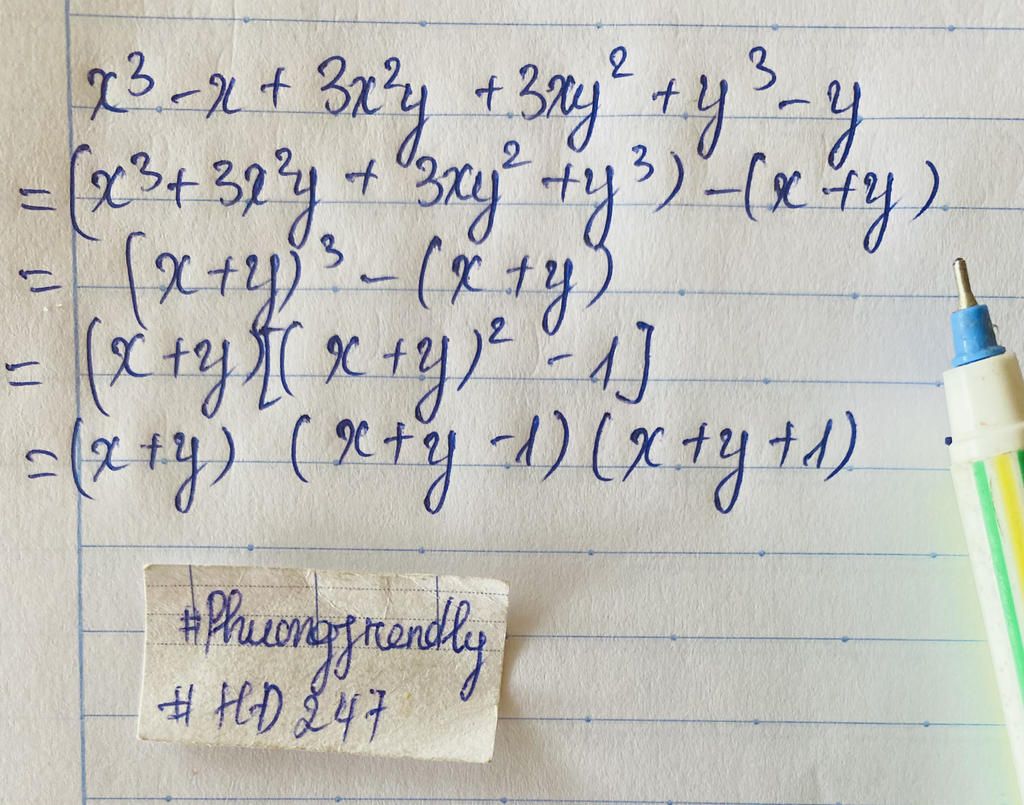 x³ - x + 3x²y + 3xy² + y³ - y
= (x³ + 3x²y + 3xy² + y³) - (x + y)
= (x + y)³ - (x + y)
= (x + y)[(x + y)² - 1]
= (x + y) (x + y - 1) (x + y + 1)
#Phuongfrendly
# HD 247